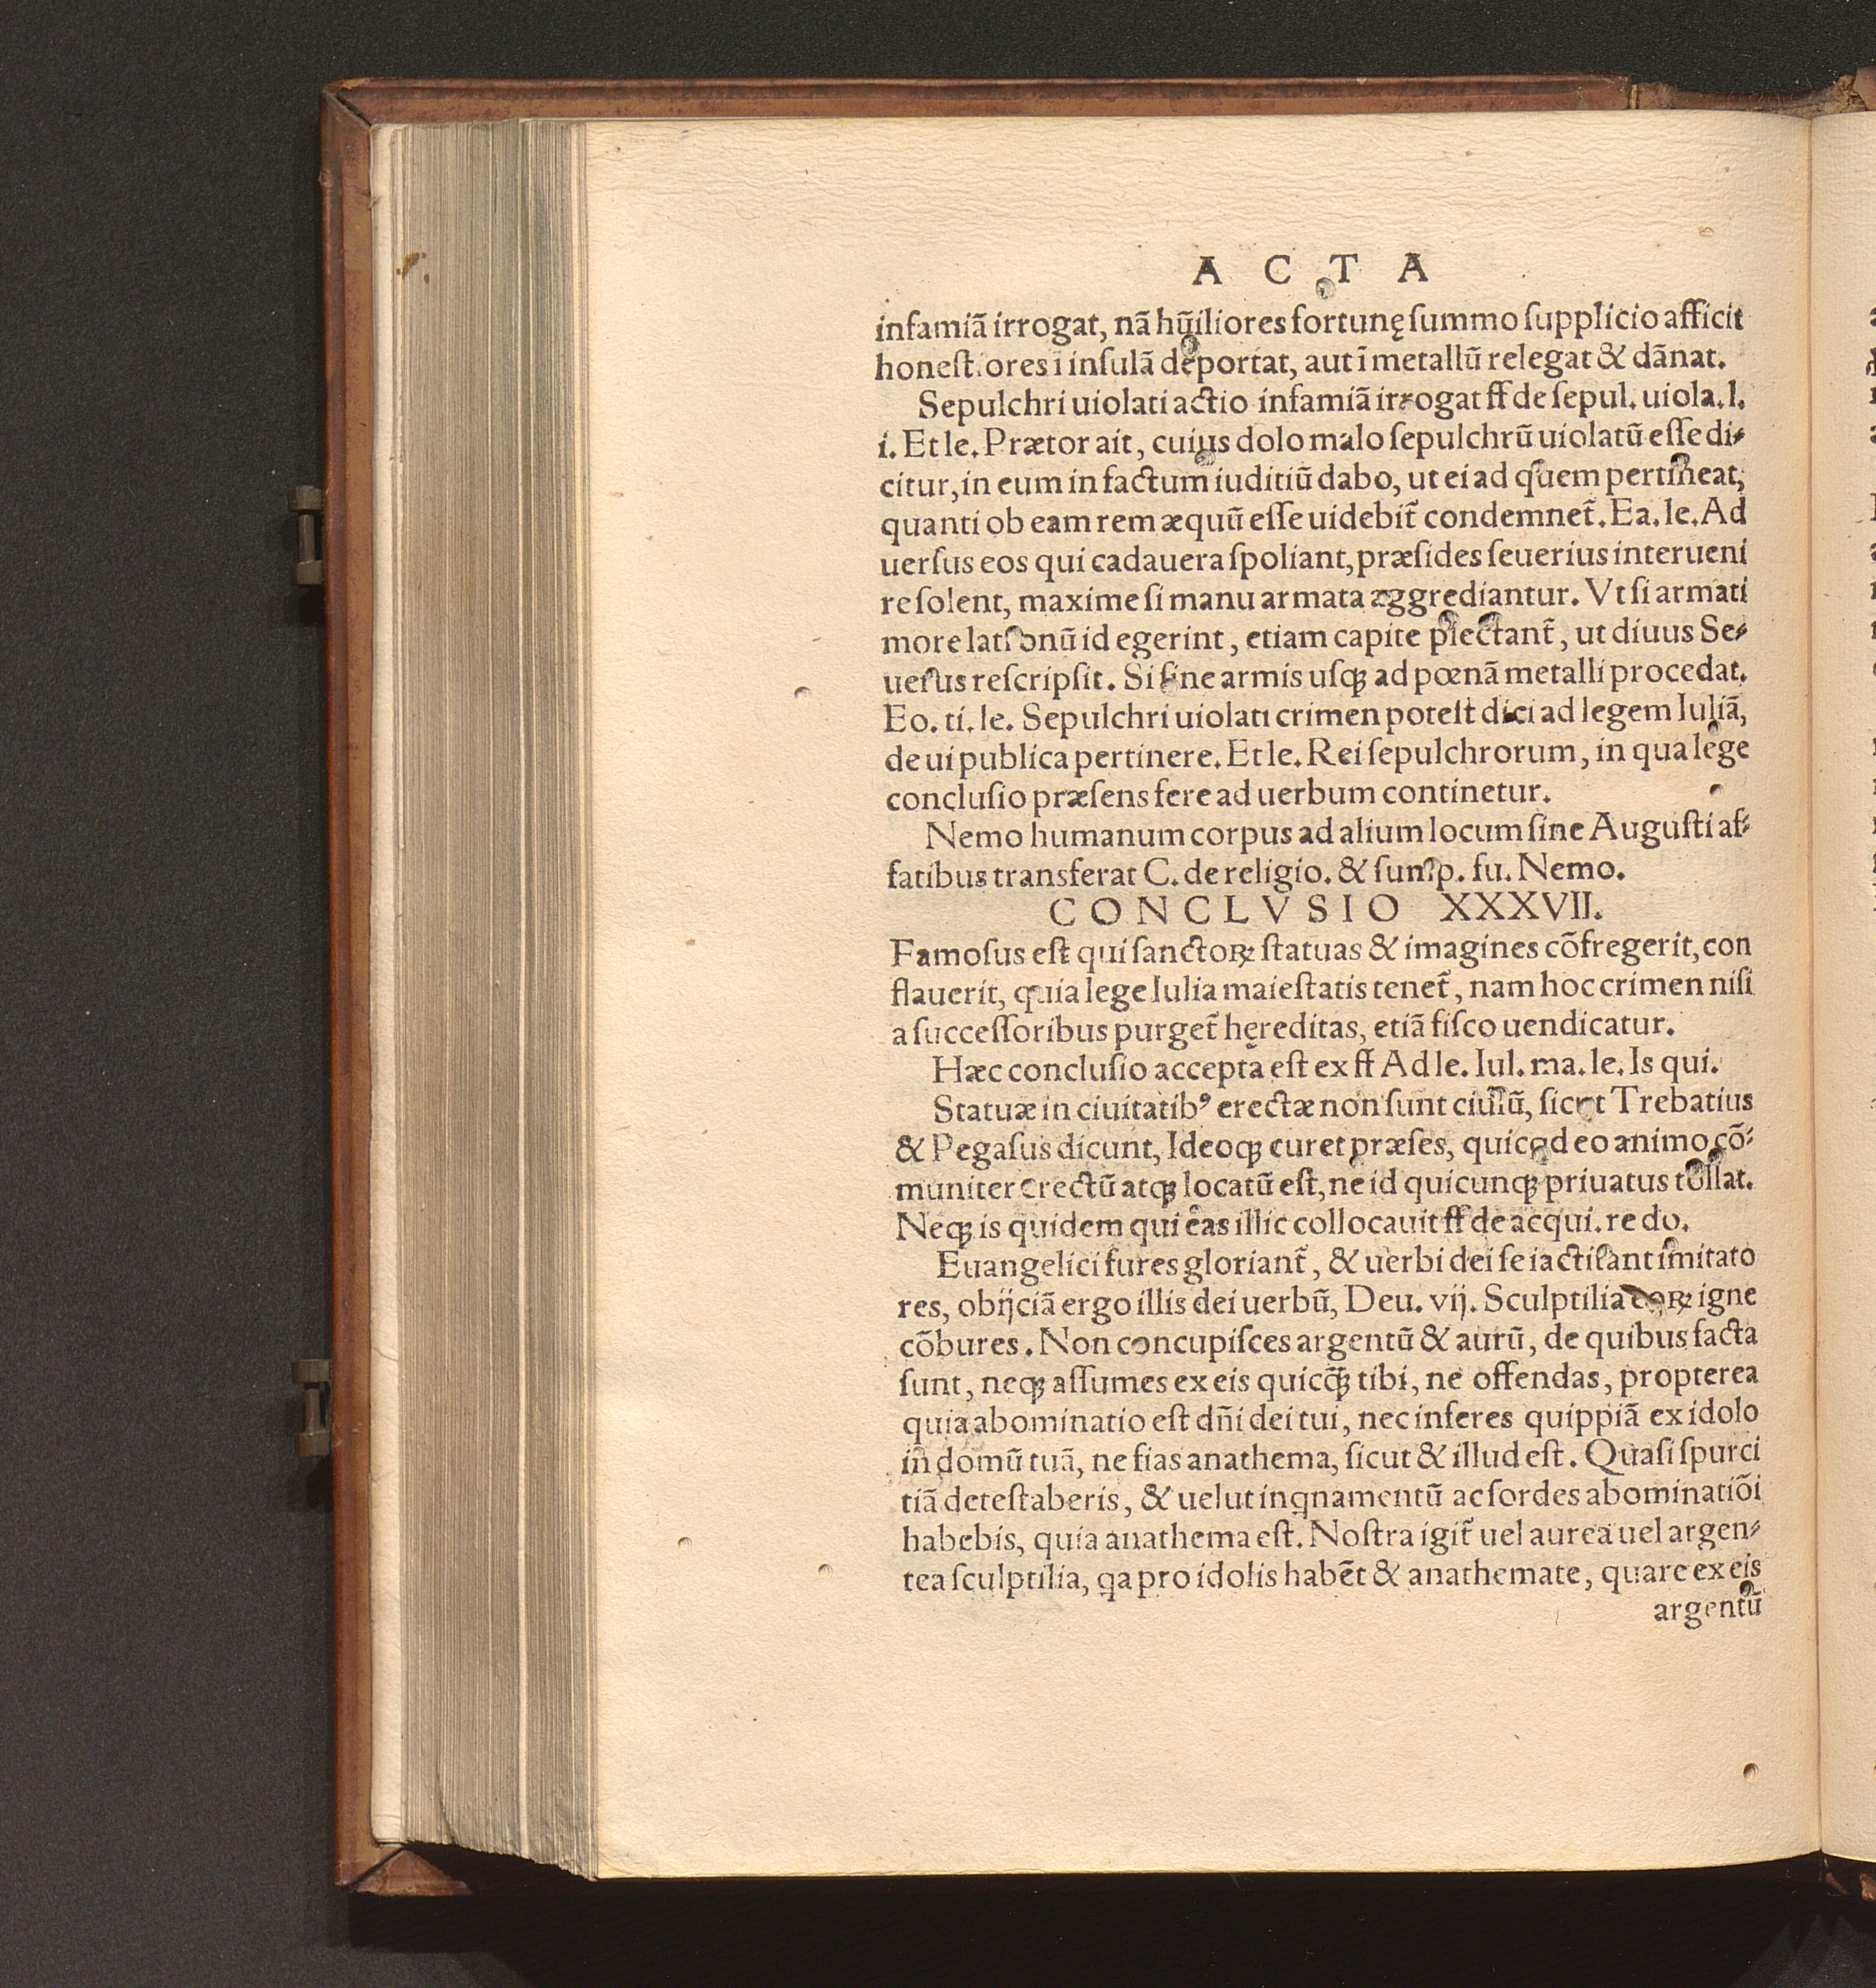 A C T A
infamiã irrogat, nã hũiliores fortunę ſummo ſupplicio afficit
honeſtiores ĩ inſulã deportat, aut ĩ metallũ relegat & dãnat.
Sepulchri uiolati actio infamiã irrogat ff de ſepul. uiola. l.
i. Et le. Prætor ait, cuius dolo malo ſepulchrũ uiolatũ eſſe di⸗
citur, in eum in factum iuditiũ dabo, ut ei ad quem pertineat,
quanti ob eam rem æquũ eſſe uidebit̃ condemnet̃. Ea. le. Ad
uerſus eos qui cadauera ſpoliant, præſides ſeuerius interueni
re ſolent, maxime ſi manu armata aggrediantur. Vt ſi armati
more latronũ id egerint, etiam capite plectant̃, ut diuus Se⸗
uerus reſcripſit. Si ſine armis uſqꝫ ad pœnã metalli procedat.
Eo. ti. le. Sepulchri uiolati crimen poteſt dici ad legem Iuliã,
de ui publica pertinere. Et le. Rei ſepulchrorum, in qua lege
concluſio præſens fere ad uerbum continetur.
Nemo humanum corpus ad alium locum ſine Auguſti af⸗
fatibus transferat C. de religio. & ſump. fu. Nemo.
CONCLVSIO XXXVII.
Famoſus eſt qui ſanctoꝝ ſtatuas & imagines cõfregerit, con
flauerit, quia lege Iulia maieſtatis tenet̃, nam hoc crimen niſi
a ſucceſſoribus purget̃ hęreditas, etiã fiſco uendicatur.
Hæc concluſio accepta eſt ex ff Ad le. Iul. ma. le. Is qui.
Statuæ in ciuitatibꝰ erectæ non ſunt ciuiũ, ſicut Trebatius
& Pegaſus dicunt, Ideoqꝫ curet præſes, quicqd eo animo cõ⸗
muniter erectũ atqꝫ locatũ eſt, ne id quicunqꝫ priuatus tollat.
Neqꝫ is quidem qui eas illic collocauit ff de acqui. re do.
Euangelici fures gloriant̃, & uerbi dei ſe iactitant imitato
res, obijciã ergo illis dei uerbũ, Deu. vij. Sculptilia eoꝝ igne
cõbures. Non concupiſces argentũ & aurũ, de quibus facta
ſunt, neqꝫ aſſumes ex eis quicq̃ꝫ tibi, ne offendas, propterea
quia abominatio eſt dñi dei tui, nec inferes quippiã ex idolo
in domũ tuã, ne fias anathema, ſicut & illud eſt. Quaſi ſpurci
tiã deteſtaberis, & uelut inqnamentũ ac ſordes abominatiõi
habebis, quia anathema eſt. Noſtra igit̃ uel aurea uel argen⸗
tea ſculptilia, qa pro idolis habẽt & anathemate, quare ex eis
argentũ